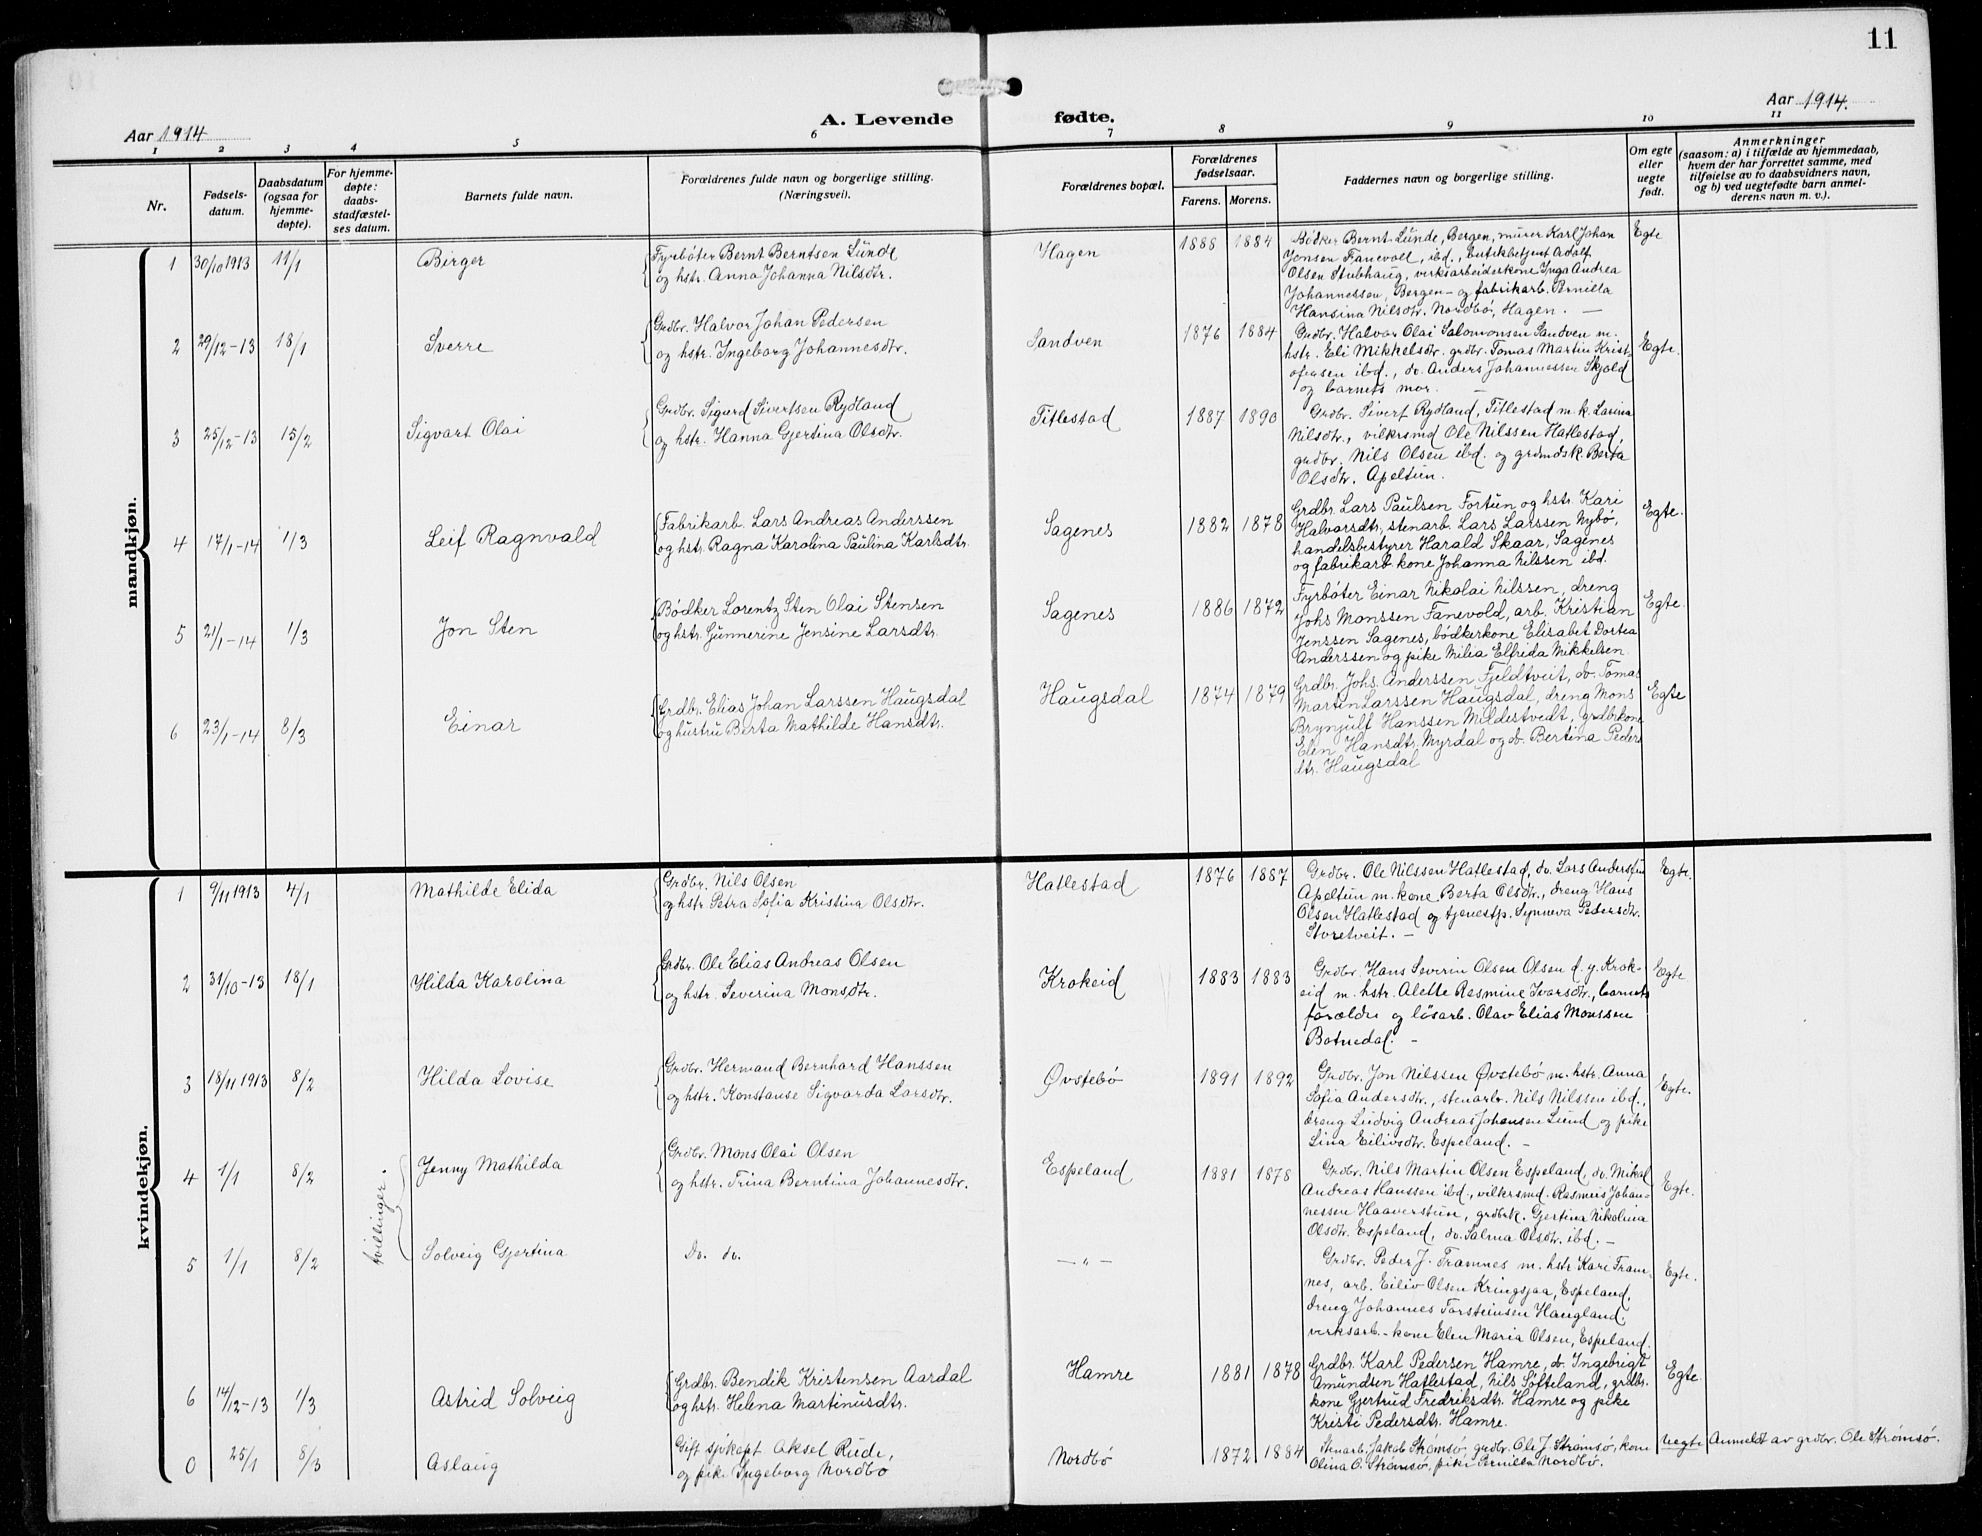 11
Aar 1914
A. Levende fødte.
Aar 1914.
1 2 3 4 5 6 7 8 9 10 11
Nr.
Fødsels-
datum.
Daabsdatum
(ogsaa for
hjemme-
døpte).
For hjemme-
døpte:
daabs-
stadfæstel-
ses datum.
Barnets fulde navn.
Forældrenes fulde navn og borgerlige stilling.
(Næringsvei).
Forældrenes bopæl.
Forældrenes
fødselsaar.
Farens. Morens.
Faddernes navn og borgerlige stilling.
Om egte
eller
uegte
født.
Anmerkninger
(saasom: a) i tilfælde av hjemmedaab,
hvem der har forrettet samme, med
tilføielse av to daabsvidners navn,
og b) ved uegtefødte barn anmel-
derens navn m. v.).
mandkjøn.
1 30/10 1913 11/1 Birger
Fyrbøter Bernt Berntsen Lunde
og hstr. Anna Johanna Nilsdtr.
Hagen 1888 1884
Bødker Bernt Lunde, Bergen, murer Karl Johan
Jonsen Fanevoll, ibd., butikbetjent Adolf
Olsen Stubhaug, verksarbeiderkone Inga Andrea
Johannessen, Bergen – og fabrikarb. Pernilla
Hansina Nilsdtr. Nordbø, Hagen. –
Egte
2 29/12–13 18/1 Sverre
Grdbr. Halvor Johan Pedersen
og hstr. Ingeborg Johannesdtr.
Sandven 1876 1884
Grdbr. Halvor Olai Salomonsen Sandven m.
hstr. Eli Mikkelsdtr. grdbr. Tomas Martin Krist-
ofersen ibd., do. Anders Johannessen Skjold
og barnets mor. –
Egte.
3 25/12–13 15/2 Sigvart Olai
Grdbr. Sigurd Sivertsen Rydland
og hstr. Hanna Gjertina Olsdtr.
Titlestad 1887 1890
Grdbr. Sivert Rydland, Titlestad m. k. Larina
Nilsdtr., vilkrsmd Ole Nilssen Hatlestad,
grdbr. Nils Olsen ibd. og grdmdsk. Berta
Olsdtr. Apeltun.
4 17/1–14 1/3 Leif Ragnvald
Fabrikarb. Lars Andreas Anderssen
og hstr. Ragna Karolina Paulina Karlsdtr.
Sagenes 1882 1878
Grdbr. Lars Paulsen Fortun og hstr. Kari
Halvorsdtr, stenarb. Lars Larssen Nybø,
handelsbestyrer Harald Skaar, Sagenes
og fabrikarb. kone Johanna Nilssen ibd.
Egte.
5 21/1–14 1/3 Jon Sten
Bødker Lorentz Sten Olai Stensen
og hstr. Gunnerine Jensine Larsdtr.
Sagenes 1886 1872
Fyrbøter Einar Nikolai Nilssen, dreng
Johs Monssen Fanevold, arb. Kristian
Jenssen Sagenes, bødkerkone Elisabet Dortea
Anderssen og pike Milia Elfrida Mikkelsen.
Egte.
6 23/1–14 8/3 Einar
Grdbr. Elias Johan Larssen Haugsdal
og hustru Berta Mathilde Hansdtr.
Haugsdal 1874 1879
Grdbr. Johs. Anderssen Fjeldtveit, do. Tomas
Martin Larssen Haugsdal, dreng Mons
Brynjulf Hanssen Mildestvedt, grdbrkone
Elen Hansdtr. Myrdal og do. Bertina Peders
dtr. Haugsdal
Egte
kvindekjøn.
1 9/11 1913 4/1 Mathilde Elida
Grdbr. Nils Olsen
og hstr. Petra Sofia Kristina Olsdtr.
Hatlestad 1876 1887
Grdbr. Ole Nilssen Hatlestad, do. Lars Anderssen
Apeltun m. kone Berta Olsdtr., dreng Hans
Olsen Hatlestad og tjenestp. Synneva Pedersdtr.
Storetveit. –
Egte.
2 31/10–13 18/1 Hilda Karolina
Grdbr. Ole Elias Andreas Olsen
og hstr. Severina Monsdtr.
Krokeid 1883 1883
Grdbr. Hans Severin Olsen Olsen d. y. Krok-
eid m. hstr. Alette Rasmine Ivarsdtr., barnets
forældre og løsarb. Olav Elias Monssen
Botnedal. –
Egte
3 18/11 1913 8/2 Hilda Lovise
Grdbr. Hermand Bernhard Hanssen
og hstr. Konstanse Sigvarda Larsdtr.
Øvstebø 1891 1892
Grdbr. Jon Nilssen Øvstebø m. hstr. Anna
Sofia Andersdtr., stenarb. Nils Nilssen ibd.,
dreng Ludvig Andreas Johansen Lund og pike
Lina Eilivsdtr. Espeland. –
Egte.
tvillinger.
4 1/1 8/2 Jenny Mathilda
Grdbr. Mons Olai Olsen
og hstr. Trina Berntina Johannesdtr.
Espeland 1881 1878
Grdbr. Nils Martin Olsen Espeland, do. Mikal
Andreas Hanssen ibd., vilkrsmd. Rasmus Johan-
nessen Haaverstun, grdbrk. Gjertina Nikolina
Olsdtr. Espeland, do. Salma Olsdtr. ibd. –
Egte.
5 1/1 8/2 Solveig Gjertina
Do. do.
– " –
Grdbr. Peder J. Tramnes m. hstr Kari Tram-
nes, arb. Eiliv Olsen Kringsjaa, Espeland,
dreng Johannes Torsteinsen Haugland,
verksarb. – kone Elen Maria Olsen, Espeland.
Egte.
6 14/12–13 1/3 Astrid Solveig
Grdbr. Bendik Kristensen Aardal
og hstr. Helena Martinusdtr.
Hamre 1881 1878
Grdbr. Karl Pedersen Hamre, do. Ingebrigt
Amundsen Hatlestad, Nils Søfteland, grdbr.
kone Gjertrud Fredriksdtr. Hamre og pike
Kristi Pedersdtr. Hamre.
Egte.
0 25/1 8/3 Aslaug
Gift sjøkapt. Aksel Rude,
og pike Ingeborg Nordbø
Nordbø 1872 1884
Stenarb. Jakob Strømsø, grdbr. Ole J. Strømsø, kone
Olina O. Strømsø, pike Pernilla Nordbø.
Uegte Anmeldt av grdbr. Ole Strømsø.